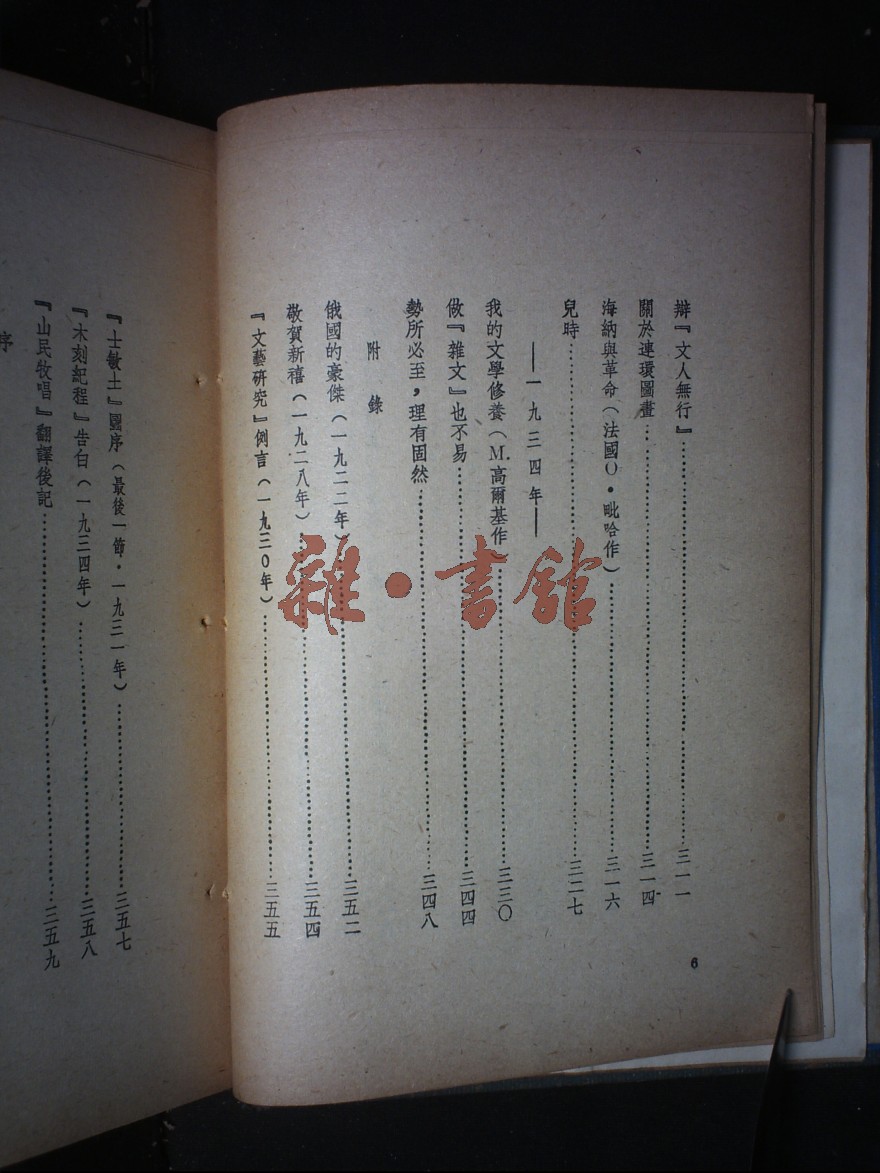 辯『文人無行』……三一一
關於連環圖畫……三一四
海納與革命（法國O·毗哈作）……三一六
兒時……三二七
——一九三四年——
我的文學修養（M.高爾基作）……三三〇
做『雜文』也不易……三四四
勢所必至，理有固然……三四八
附錄
俄國的豪傑（一九二二年）……三五二
敬賀新禧（一九二八年）……三五四
『文藝研究』例言（一九三〇年）……三五五
6
『士敏土』圖序（最後一節·一九三一年）……三五七
『木刻紀程』告白（一九三四年）……三五八
『山民牧唱』翻譯後記……三五九
序
雜·書館